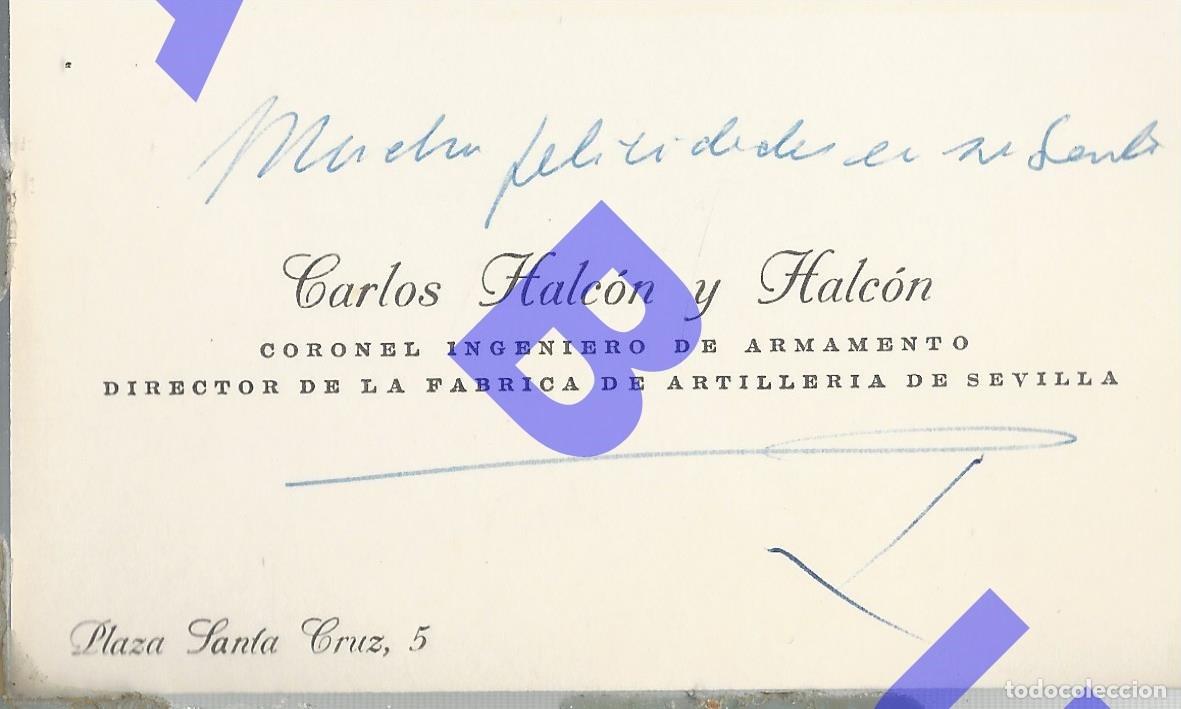 Muchas felicidades en su Santo
Carlos Halcón y Halcón
CORONEL INGENIERO DE ARMAMENTO
DIRECTOR DE LA FABRICA DE ARTILLERIA DE SEVILLA
Plaza Santa Cruz, 5
B
todocoleccion